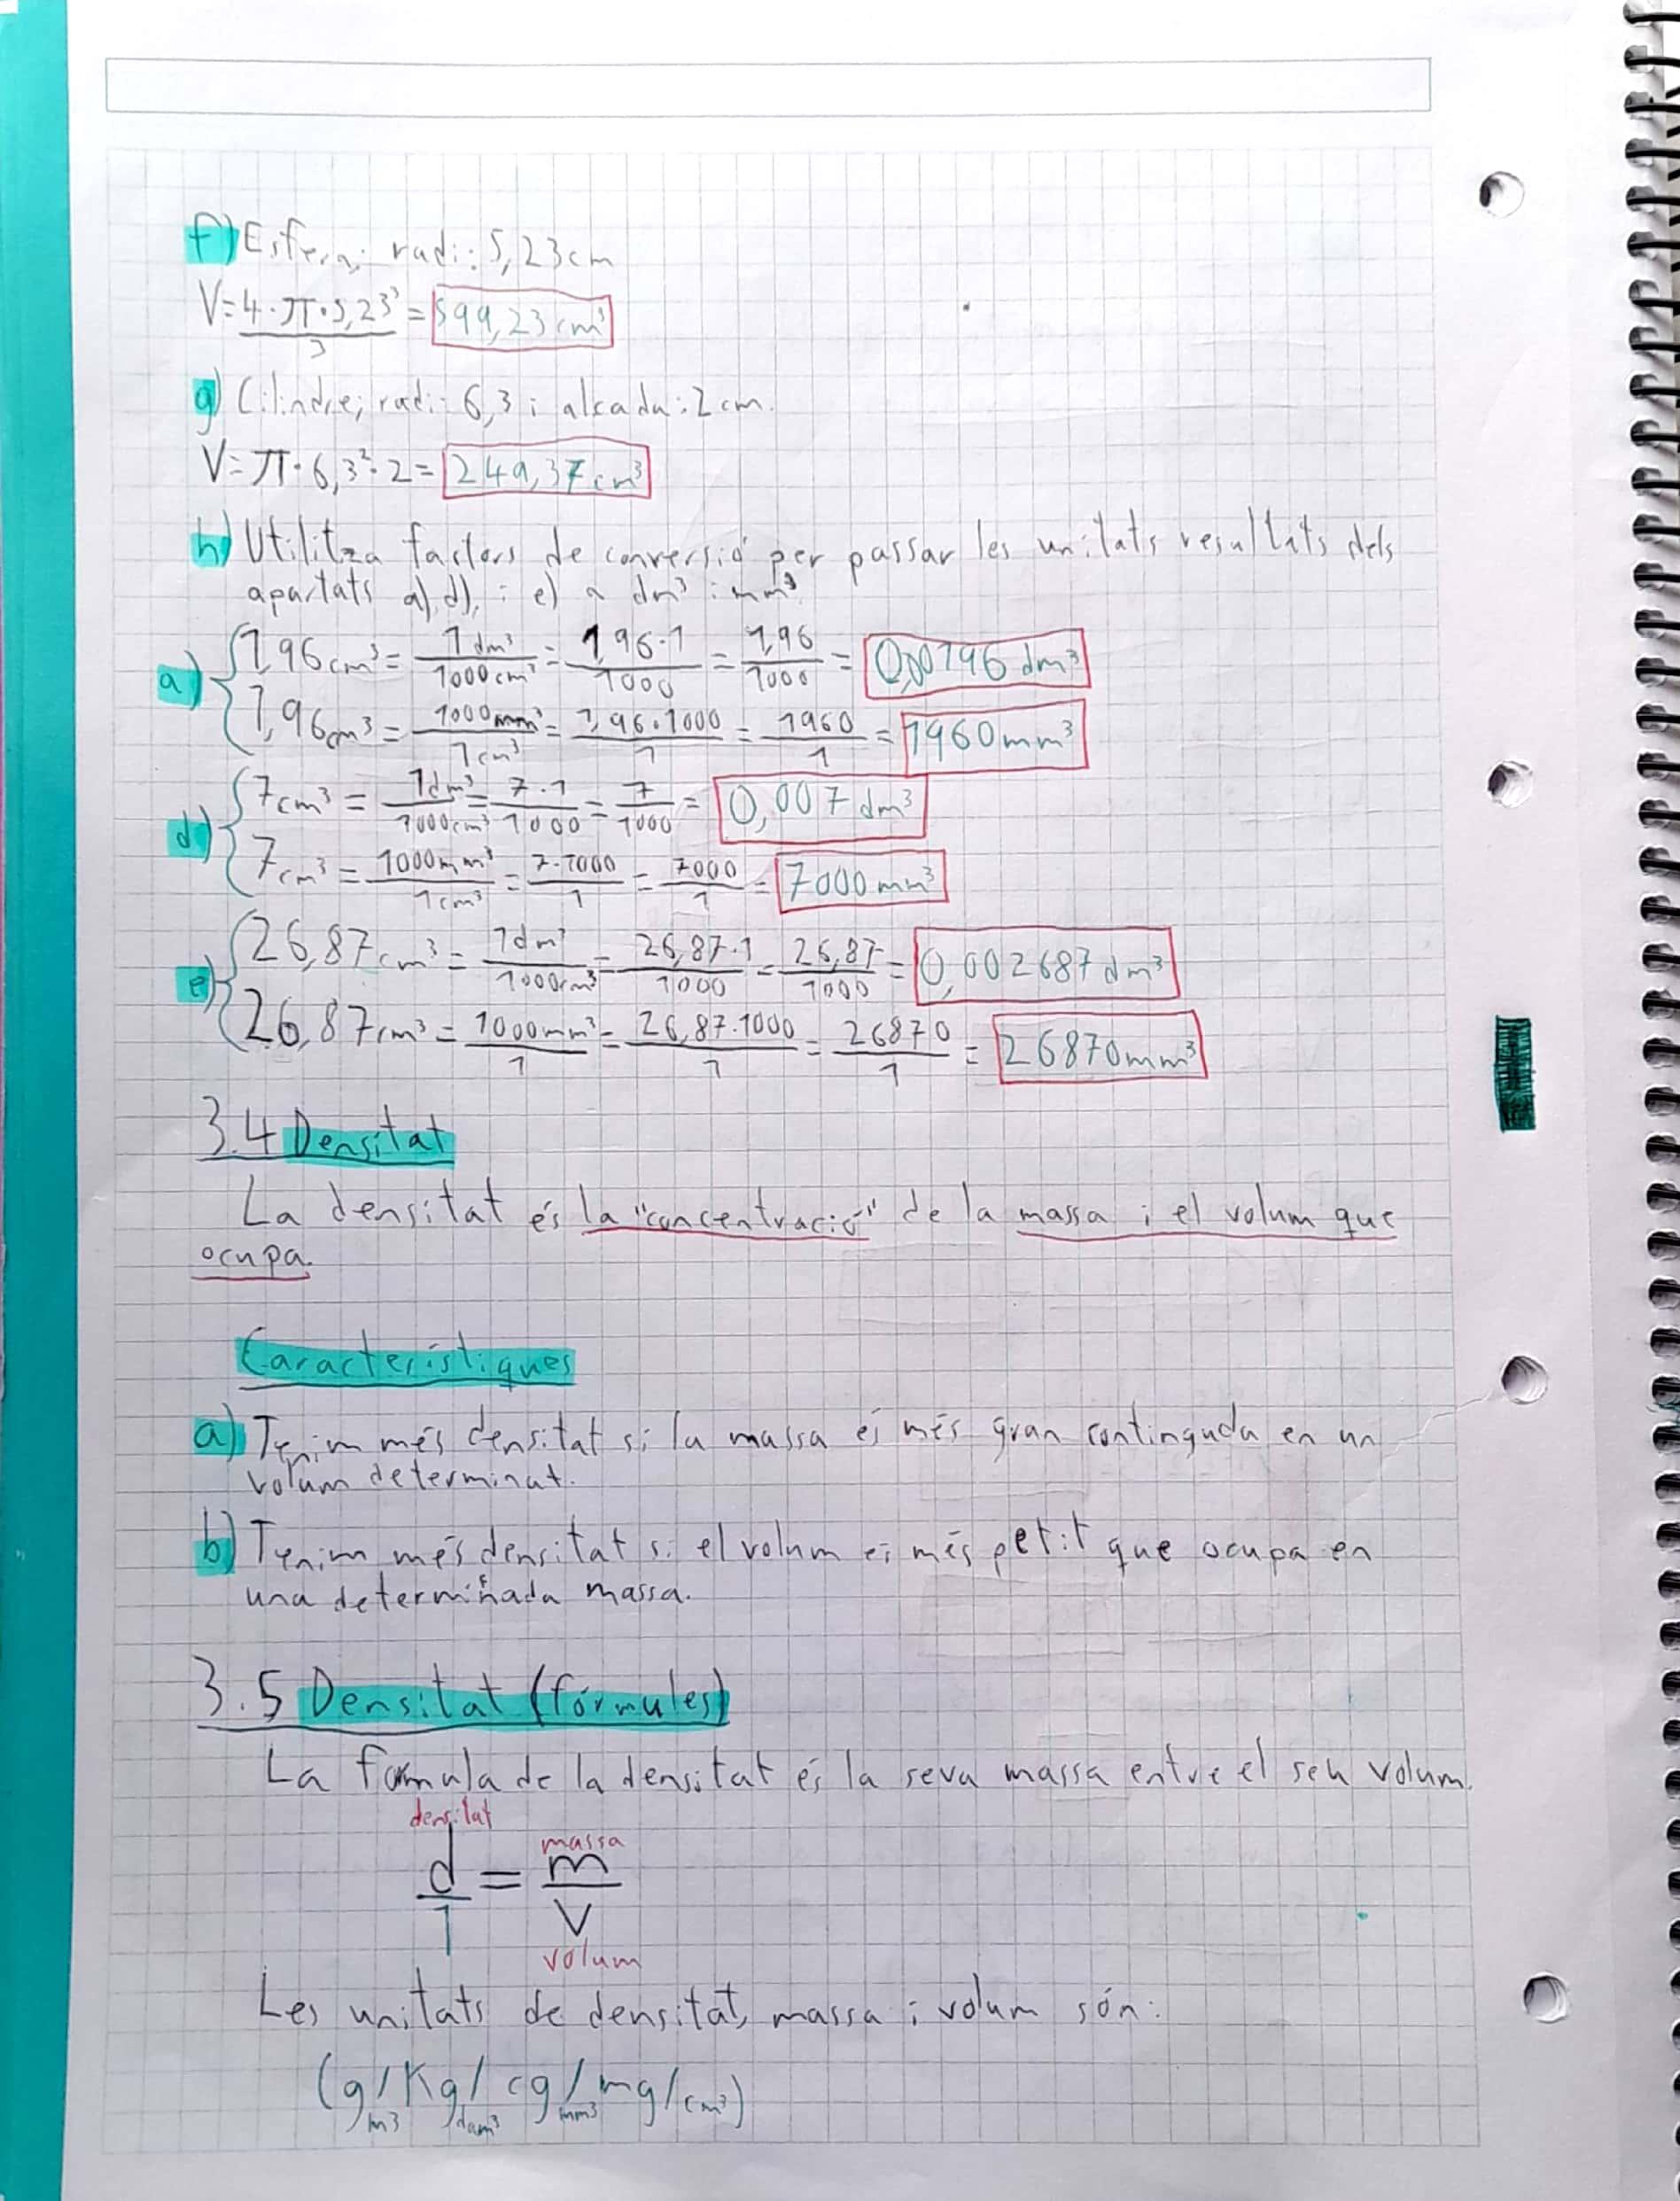 f) Esfera; radi: 5,23cm
V=4·π·5,23³/3 = 599,23cm³
g) Cilindre; radi: 6,3 i alcada: 2cm.
V=π·6,3²·2= 249,37cm³
h) Utilitza factors de conversió per passar les unitats resultats dels
apartats a), d), i e) a dm³ i mm³.
a) 1,96cm³ = 1dm³/1000cm³ = 1,96·1/1000 = 1,96/1000 = 0,00196dm³
1,96cm³ = 1000mm³/1cm³ = 1,96·1000/1 = 1960/1 = 1960mm³
d) 7cm³ = 1dm³/1000cm³ = 7·1/1000 = 7/1000 = 0,007dm³
7cm³ = 1000mm³/1cm³ = 7·1000/1 = 7000/1 = 7000mm³
e) 26,87cm³ = 1dm³/1000cm³ = 26,87·1/1000 = 26,87/1000 = 0,002687dm³
26,87cm³ = 1000mm³/1 = 26,87·1000/1 = 26870/1 = 26870mm³
3.4 Densitat
La densitat és la "concentració" de la massa i el volum que
ocupa.
Característiques
a) Tenim més densitat si la massa és més gran continguda en un
volum determinat.
b) Tenim més densitat si el volum és més petit que ocupa en
una determinada massa.
3.5 Densitat (fórmules)
La formula de la densitat és la seva massa entre el seu volum.
densitat massa
d/1 = m/V
volum
Les unitats de densitat, massa i volum són:
(g/m³ Kg/dam³ cg/mm³ mg/cm³)